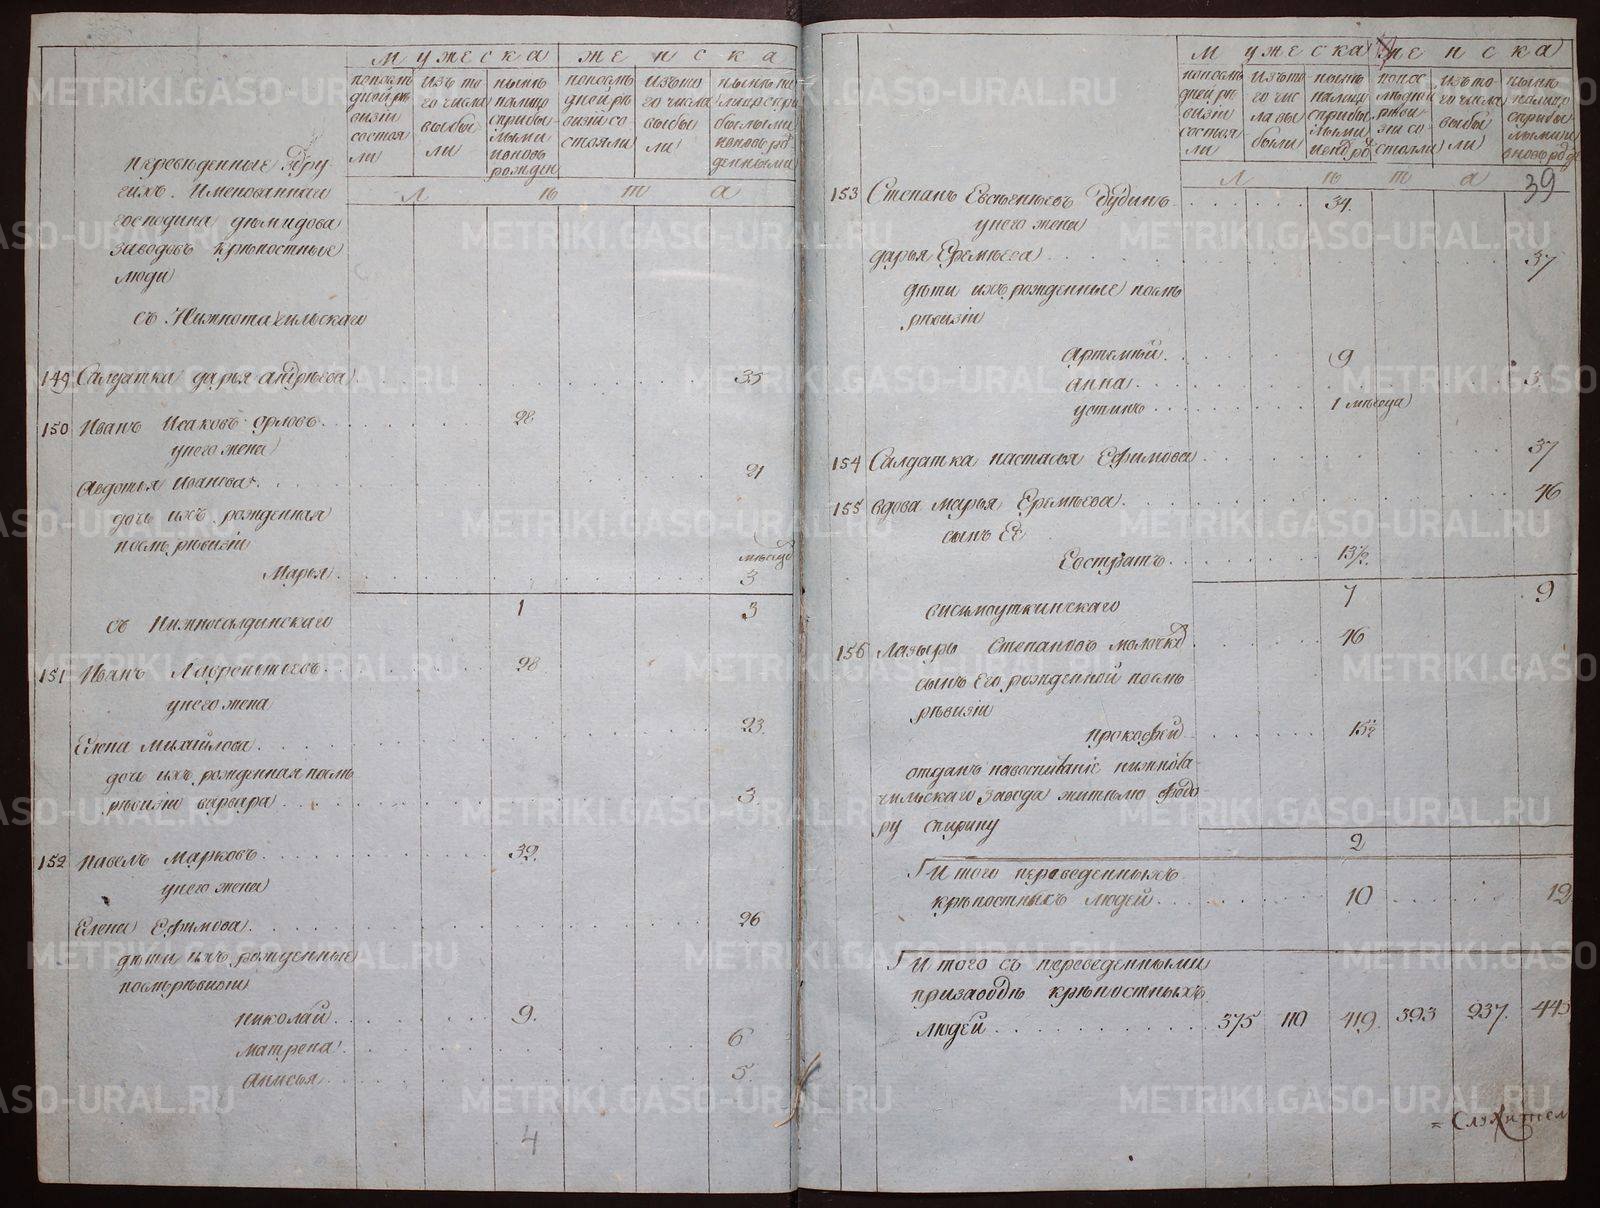 Мужеска женска
попослѣдней ревизіи состояли
изъ того числа выбыли
нынѣ налицо съприбылыми и вновь рожден
попослѣдней ревизіи состояли
изъ того числа выбыли
нынѣ налицо съ прибылыми и вновь рожденными
Лѣта
переведенные здру
гихъ Именованнаго
Господина демидова
заводовъ крѣпостные
люди
съ Нижнотагильскаго
149 Салдатка дарья андреева 35
150 Иванъ Исаковъ орловъ 28
унего жена
Авдотья Иванова 21
дочь ихъ рожденная
послѣ ревизіи месяцо
Марья 3
1 3
съ Нижнесалдинскаго
151 Иванъ Лаврентьевъ 28
унего жена
Елена михайлова 23
дочь ихъ рожденная послѣ
ревизіи варвара 3
152 Павелъ Марковъ 32
унего жена
Елена Ефимова 26
дети ихъ рожденные
послѣ ревизіи
николай 9
матрена 6
анисья 5
4
Мужеска женска
попослѣдней ревизіи состояли
изъ того числа выбыли
нынѣ налицо съприбылыми и внов рж
попослѣдней ревизіи состояли
изъ того числа выбыли
нынѣ налицо съприбылыми и вновь рж
Лѣта 39
153 Степанъ Евсѣеньевъ дудинъ 34
унего жена
дарья Еремѣева 37
дѣти ихъ рожденные послѣ
ревизіи
Артемий 9
анна 3
устинъ 1 месеца
154 Салдатка настасья Ефимова 37
155 вдова марья Еремѣева 46
сынъ Её
Евстратъ 13½
7 9
висимоуткинскаго
156 Лазырь Степановъ молочков 46
сынъ Его рожденной послѣ
ревизіи
прокофей 15½
отданъ навоспитаніе нижнѣта
гильскаго завода жителю федо
ру спирину
2
Итого переведенныхъ
крѣпостныхъ людей 10 12
Итого съ переведенными
призаводѣ крѣпостныхъ
людей 375 110 419 393 237 445
= Служител
METRIKI.GASO-URAL.RU